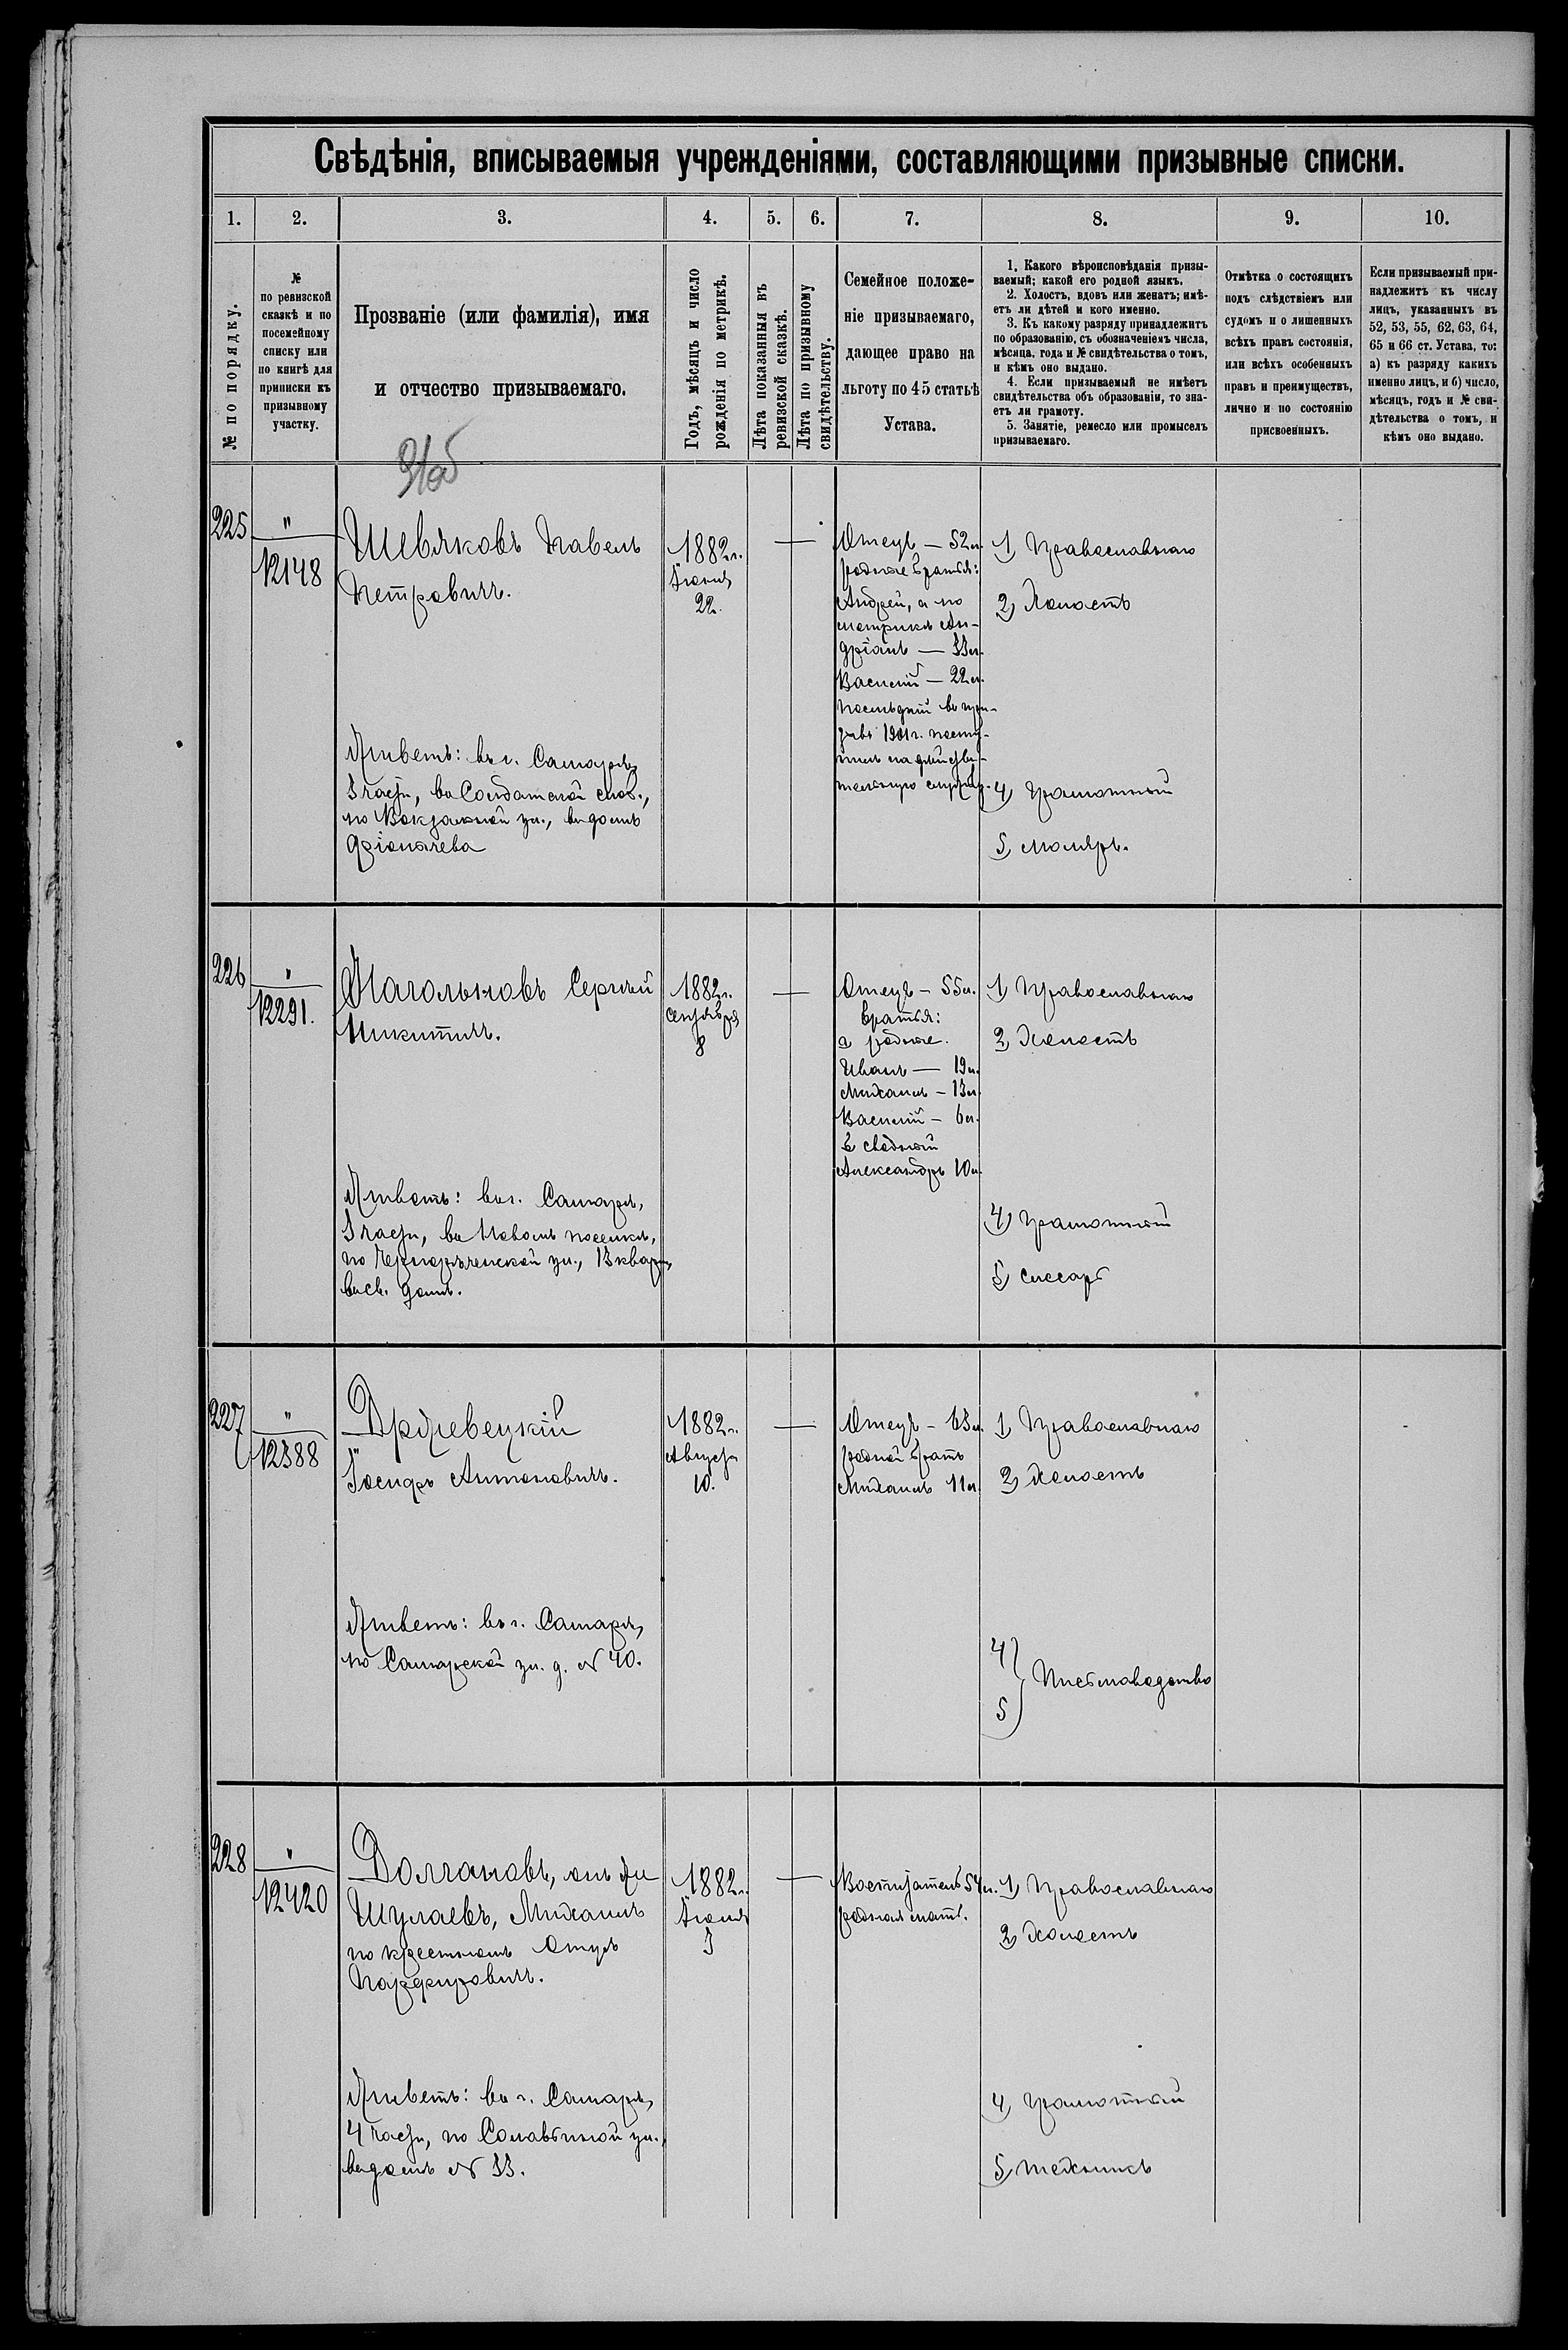 Свѣдѣнія, вписываемыя учрежденіями, составляющими призывные списки.
1. 2. 3. 4. 5. 6. 7. 8. 9. 10.
№ по порядку.
№
по ревизской
сказкѣ и по
посемейному
списку или
по книгѣ для
приписки къ
призывному
участку.
Прозваніе (или фамилія), имя
и отчество призываемаго.
Годъ, мѣсяцъ и число
рожденія по метрикѣ.
Лѣта показанныя въ
ревизской сказкѣ.
Лѣта по призывному
свидѣтельству.
Семейное положе-
ніе призываемаго,
дающее право на
льготу по 45 статьѣ
Устава.
1. Какого вѣроисповѣданія призы-
ваемый; какой его родной языкъ.
2. Холостъ, вдовъ или женатъ; имѣ-
етъ ли дѣтей и кого именно.
3. Къ какому разряду принадлежитъ
по образованію, съ обозначеніемъ числа,
мѣсяца, года и № свидѣтельства о томъ,
и кѣмъ оно выдано.
4. Если призываемый не имѣетъ
свидѣтельства объ образованіи, то зна-
етъ ли грамоту.
5. Занятіе, ремесло или промыселъ
призываемаго.
Отмѣтка о состоящихъ
подъ слѣдствіемъ или
судомъ и о лишенныхъ
всѣхъ правъ состоянія,
или всѣхъ особенныхъ
правъ и преимуществъ,
лично и по состоянію
присвоенныхъ.
Если призываемый при-
надлежитъ къ числу
лицъ, указанныхъ въ
52, 53, 55, 62, 63, 64,
65 и 66 ст. Устава, то:
а) къ разряду какихъ
именно лицъ, и б) число,
мѣсяцъ, годъ и № сви-
дѣтельства о томъ, и
кѣмъ оно выдано.
225
"
12148
Шевяковъ Павелъ
Петровичъ.
Живетъ: въ г. Самарѣ,
3 части, въ Солдатской слоб.,
по Вокзальной ул., въ домѣ
1882 г.
Іюня
22.
—
Отецъ — 52 л.
родные братья:
Андрей, а по
метрикѣ Ан-
дріанъ — 33 л.
Василій — 22 л.
послѣдній въ при-
зывъ 1901 г. посту-
пилъ на дѣйстви-
тельную службу.
1) Православнаго
2) Холостъ
4) Грамотный
5) маляръ.
226
"
12291.
Нагольновъ Сергѣй
Никитичъ.
Живетъ: въ г. Самарѣ,
3 части, въ Новомъ поселкѣ,
по Чернорѣченской ул., 13 кварт.
въ св. домѣ.
1882 г.
Сентября
8
—
Отецъ — 55 л.
братья:
а родные.
Иванъ — 19 л.
Михаилъ — 13 л.
Василій — 6 л.
б сводный
Александръ 10 л.
1) Православнаго
2) Холостъ
4) Грамотный
5) слесарь
227
"
12388
Држевецкій
Іосифъ Антоновичъ.
Живетъ: въ г. Самарѣ,
по Самарской ул. д. № 40.
1882 г.
Августа
10.
—
Отецъ — 63 л.
родной братъ
Михаилъ 11 л.
1) Православнаго
2) Холостъ
4)
5) Письмоводство
228
"
12420
Долгановъ, онъ же
Шулаевъ, Михаилъ
по крестному отцу
Порфирьевичъ.
Живетъ: въ г. Самарѣ,
4 части, по Соловьиной ул.,
въ домѣ № 33.
1882 г.
Іюня
3
—
Воспитатель 54 л.
родная мать.
1) Православнаго
2) Холостъ
4) Грамотный
5) техникъ